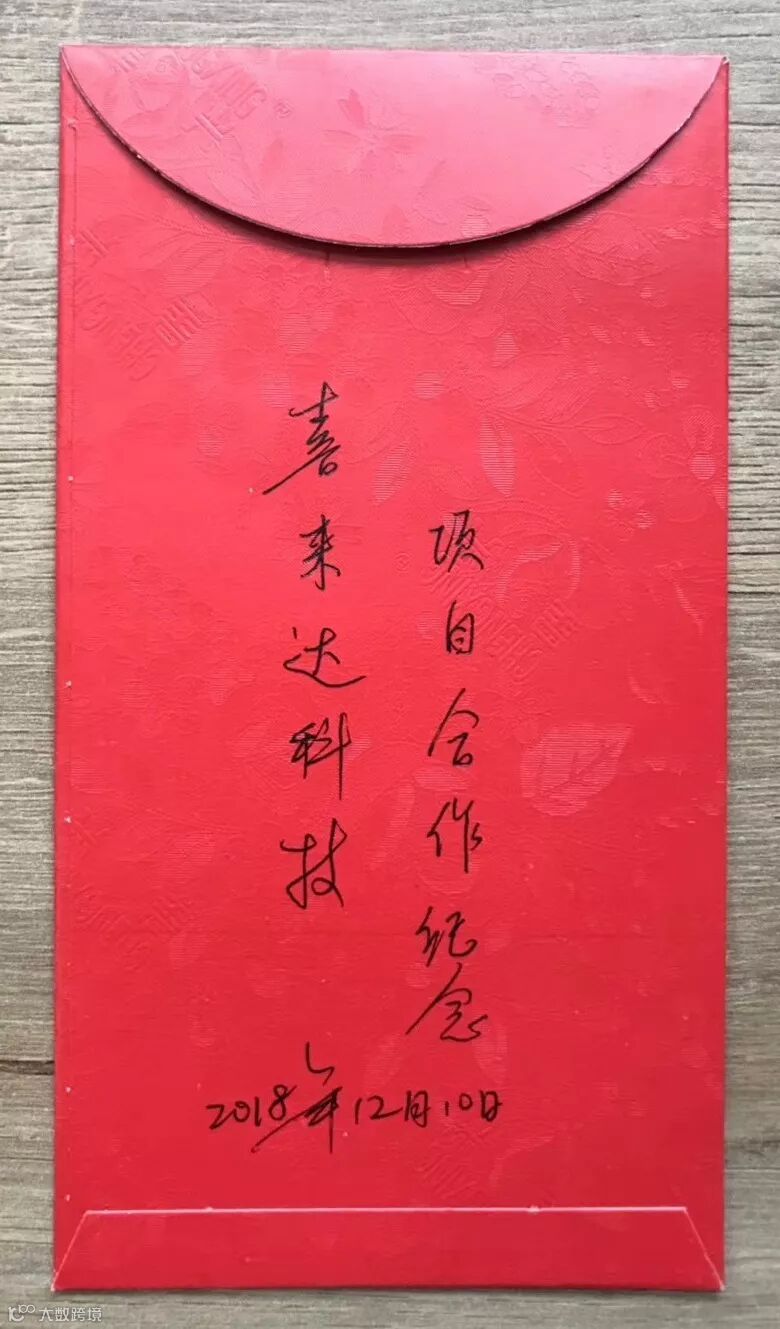 项目合作纪念
喜来达科技
2018年12月10日
大数跨境